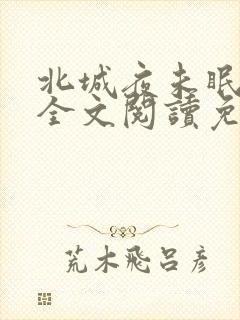 北城夜未眠
全文閱讀免
荒木飛呂彦